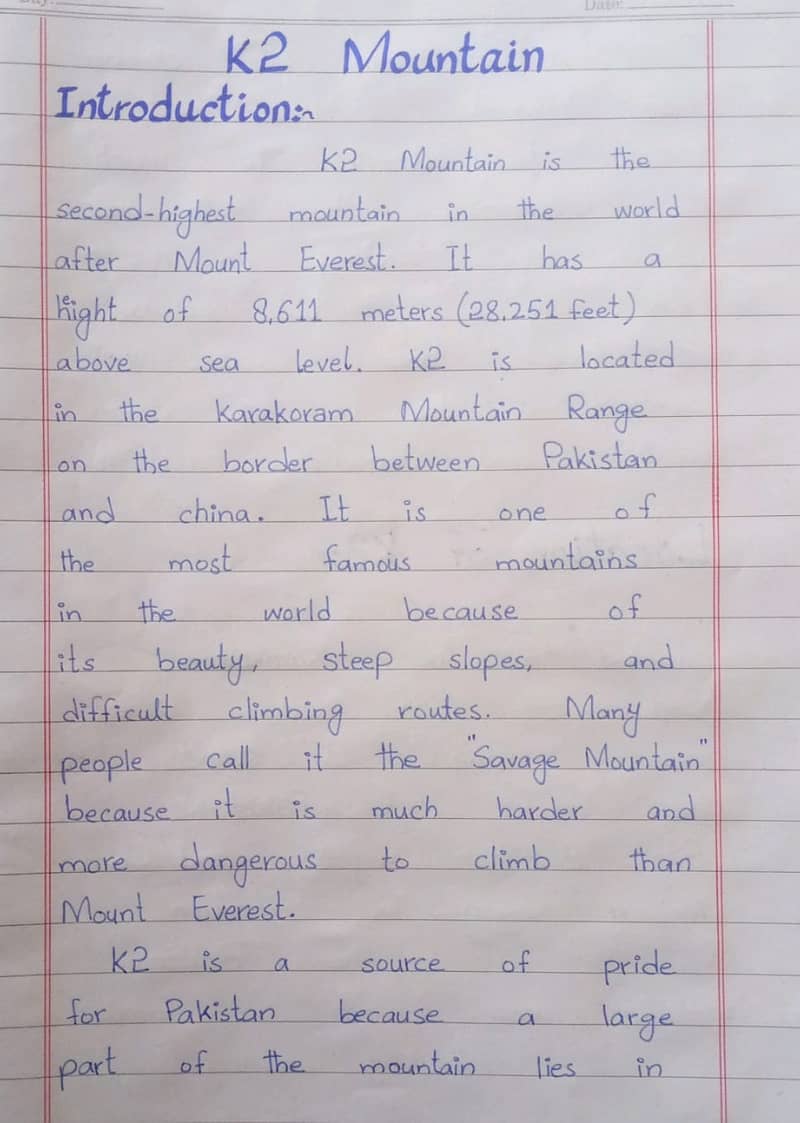 Date:
K2 Mountain
Introduction:~
K2 Mountain is the
second-highest mountain in the world
after Mount Everest. It has a
height of 8,611 meters (28,251 feet)
above sea level. K2 is located
in the Karakoram Mountain Range
on the border between Pakistan
and china. It is one of
the most famous mountains
in the world because of
its beauty, steep slopes, and
difficult climbing routes. Many
people call it the "Savage Mountain"
because it is much harder and
more dangerous to climb than
Mount Everest.
K2 is a source of pride
for Pakistan because a large
part of the mountain lies in